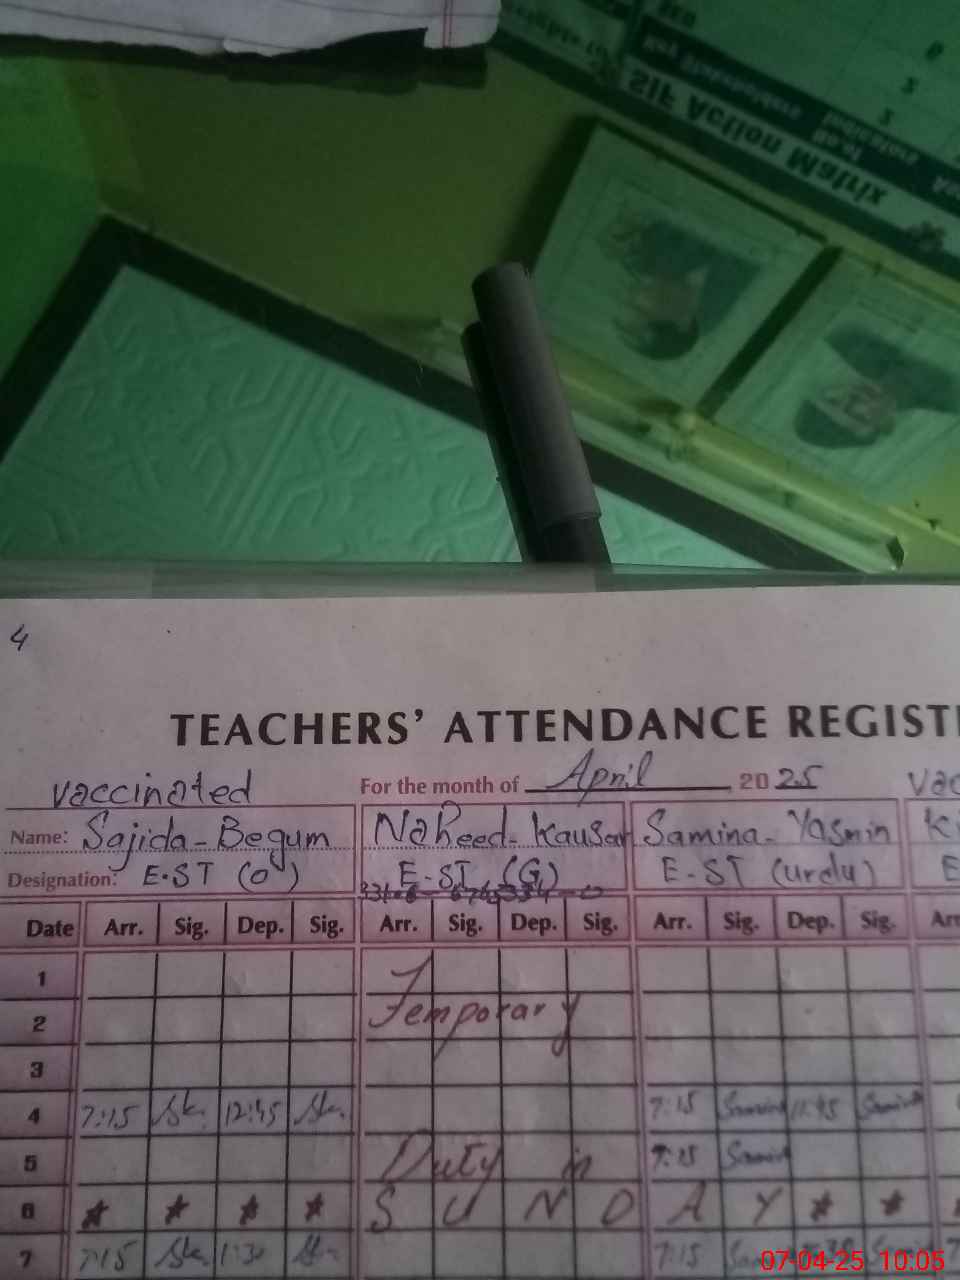 SIP Action Matrix
4
TEACHERS' ATTENDANCE REGIST
vaccinated For the month of April 2025 vac
Name: Sajida - Begum Naheed - Kausar Samina - Yasmin Ki
Designation: E.ST (O) E-ST (G) E-ST (urdu) E
Date Arr. Sig. Dep. Sig. Arr. Sig. Dep. Sig. Arr. Sig. Dep. Sig. Arr
1
2 Temporary
3
4 7:15 Sk. 12:45 Sk. 7:15 Samina 11:45 Samina
5 Duty in 7:15 Samina
6 * * * * S U N D A Y * *
7 7:15 Sk 1:30 Sk 7:15
07-04-25 10:05